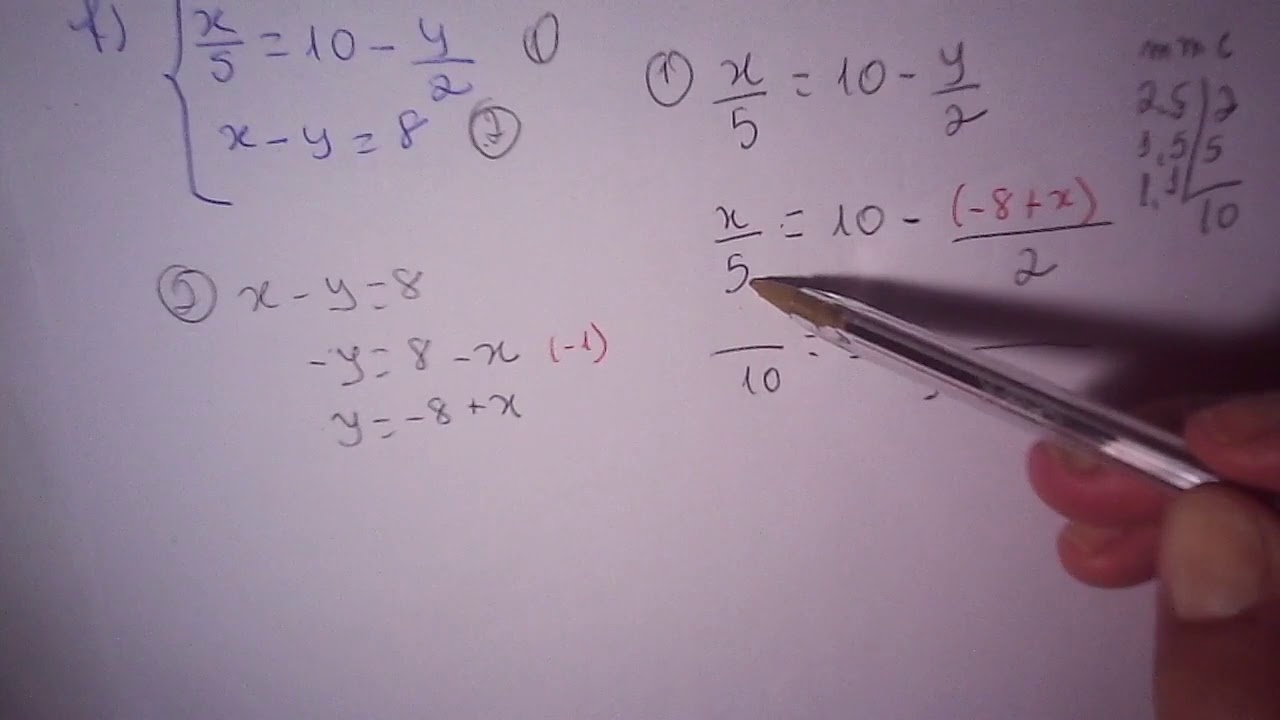 f) x/5 = 10 - y/2 ①
x - y = 8 ②
② x - y = 8
-y = 8 - x (-1)
y = -8 + x
① x/5 = 10 - y/2
x/5 = 10 - (-8 + x)/2
/10 =
mmc
2 5 | 2
1, 5 | 5
1, 1
10